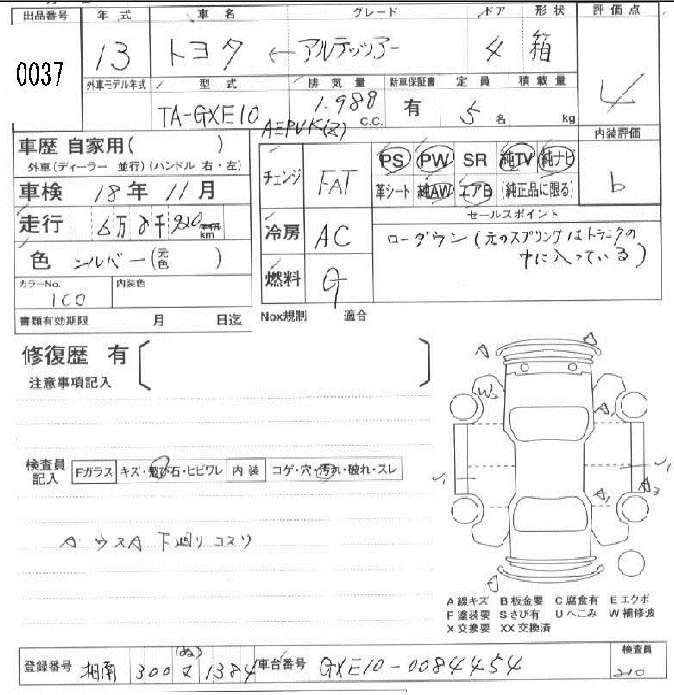 出品番号 年式 車名 グレード ドア 形状 評価点
0037 13 トヨタ ← アルテッツァー 4 箱 4
外車モデル年式 型式 排気量 新車保証書 定員 積載量
TA-GXE10 1.988 C.C. 有 5名 kg
内装評価
b
車歴 自家用( )
外車(ディーラー 並行)(ハンドル 右・左)
車検 18年11月
走行 万 千 km
色 シルバー(元色 )
カラーNo. 1C0 内装色
書類有効期限 月 日迄
チェンジ FAT
冷房 AC
燃料 G
Nox規制 適合
PS PW SR 純TV 純ナビ
革シート 純AW エアB (純正品に限る)
セールスポイント
ローダウン(元のスプリングはトランクの
中に入っている)
修復歴 有
注意事項記入
検査員記入 Fガラス キズ・飛び石・ヒビワレ 内装 コゲ・穴・汚れ・破れ・スレ
A ウスA 下廻りコスリ
W A A1 A2
A 線キズ B 板金要 C 腐食有 E エクボ
F 塗装要 S さび有 U へこみ W 補修波
X 交換要 XX 交換済
登録番号 湘南 300 (ぬ) 1384 車台番号 GXE10-0084454
検査員
210